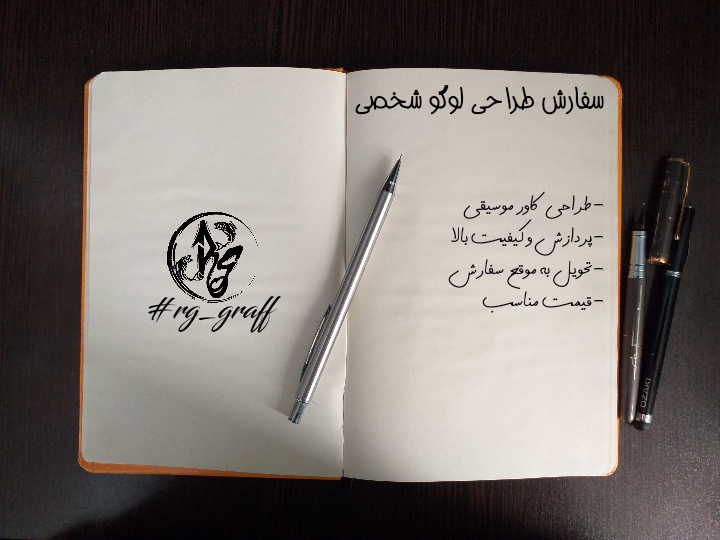 سفارش طراحی لوگو شخصی
-طراحی کاور موسیقی
-پردازش و کیفیت بالا
-تحویل به موقع سفارش
-قیمت مناسب
Rg
#rg_graff
OZAKI